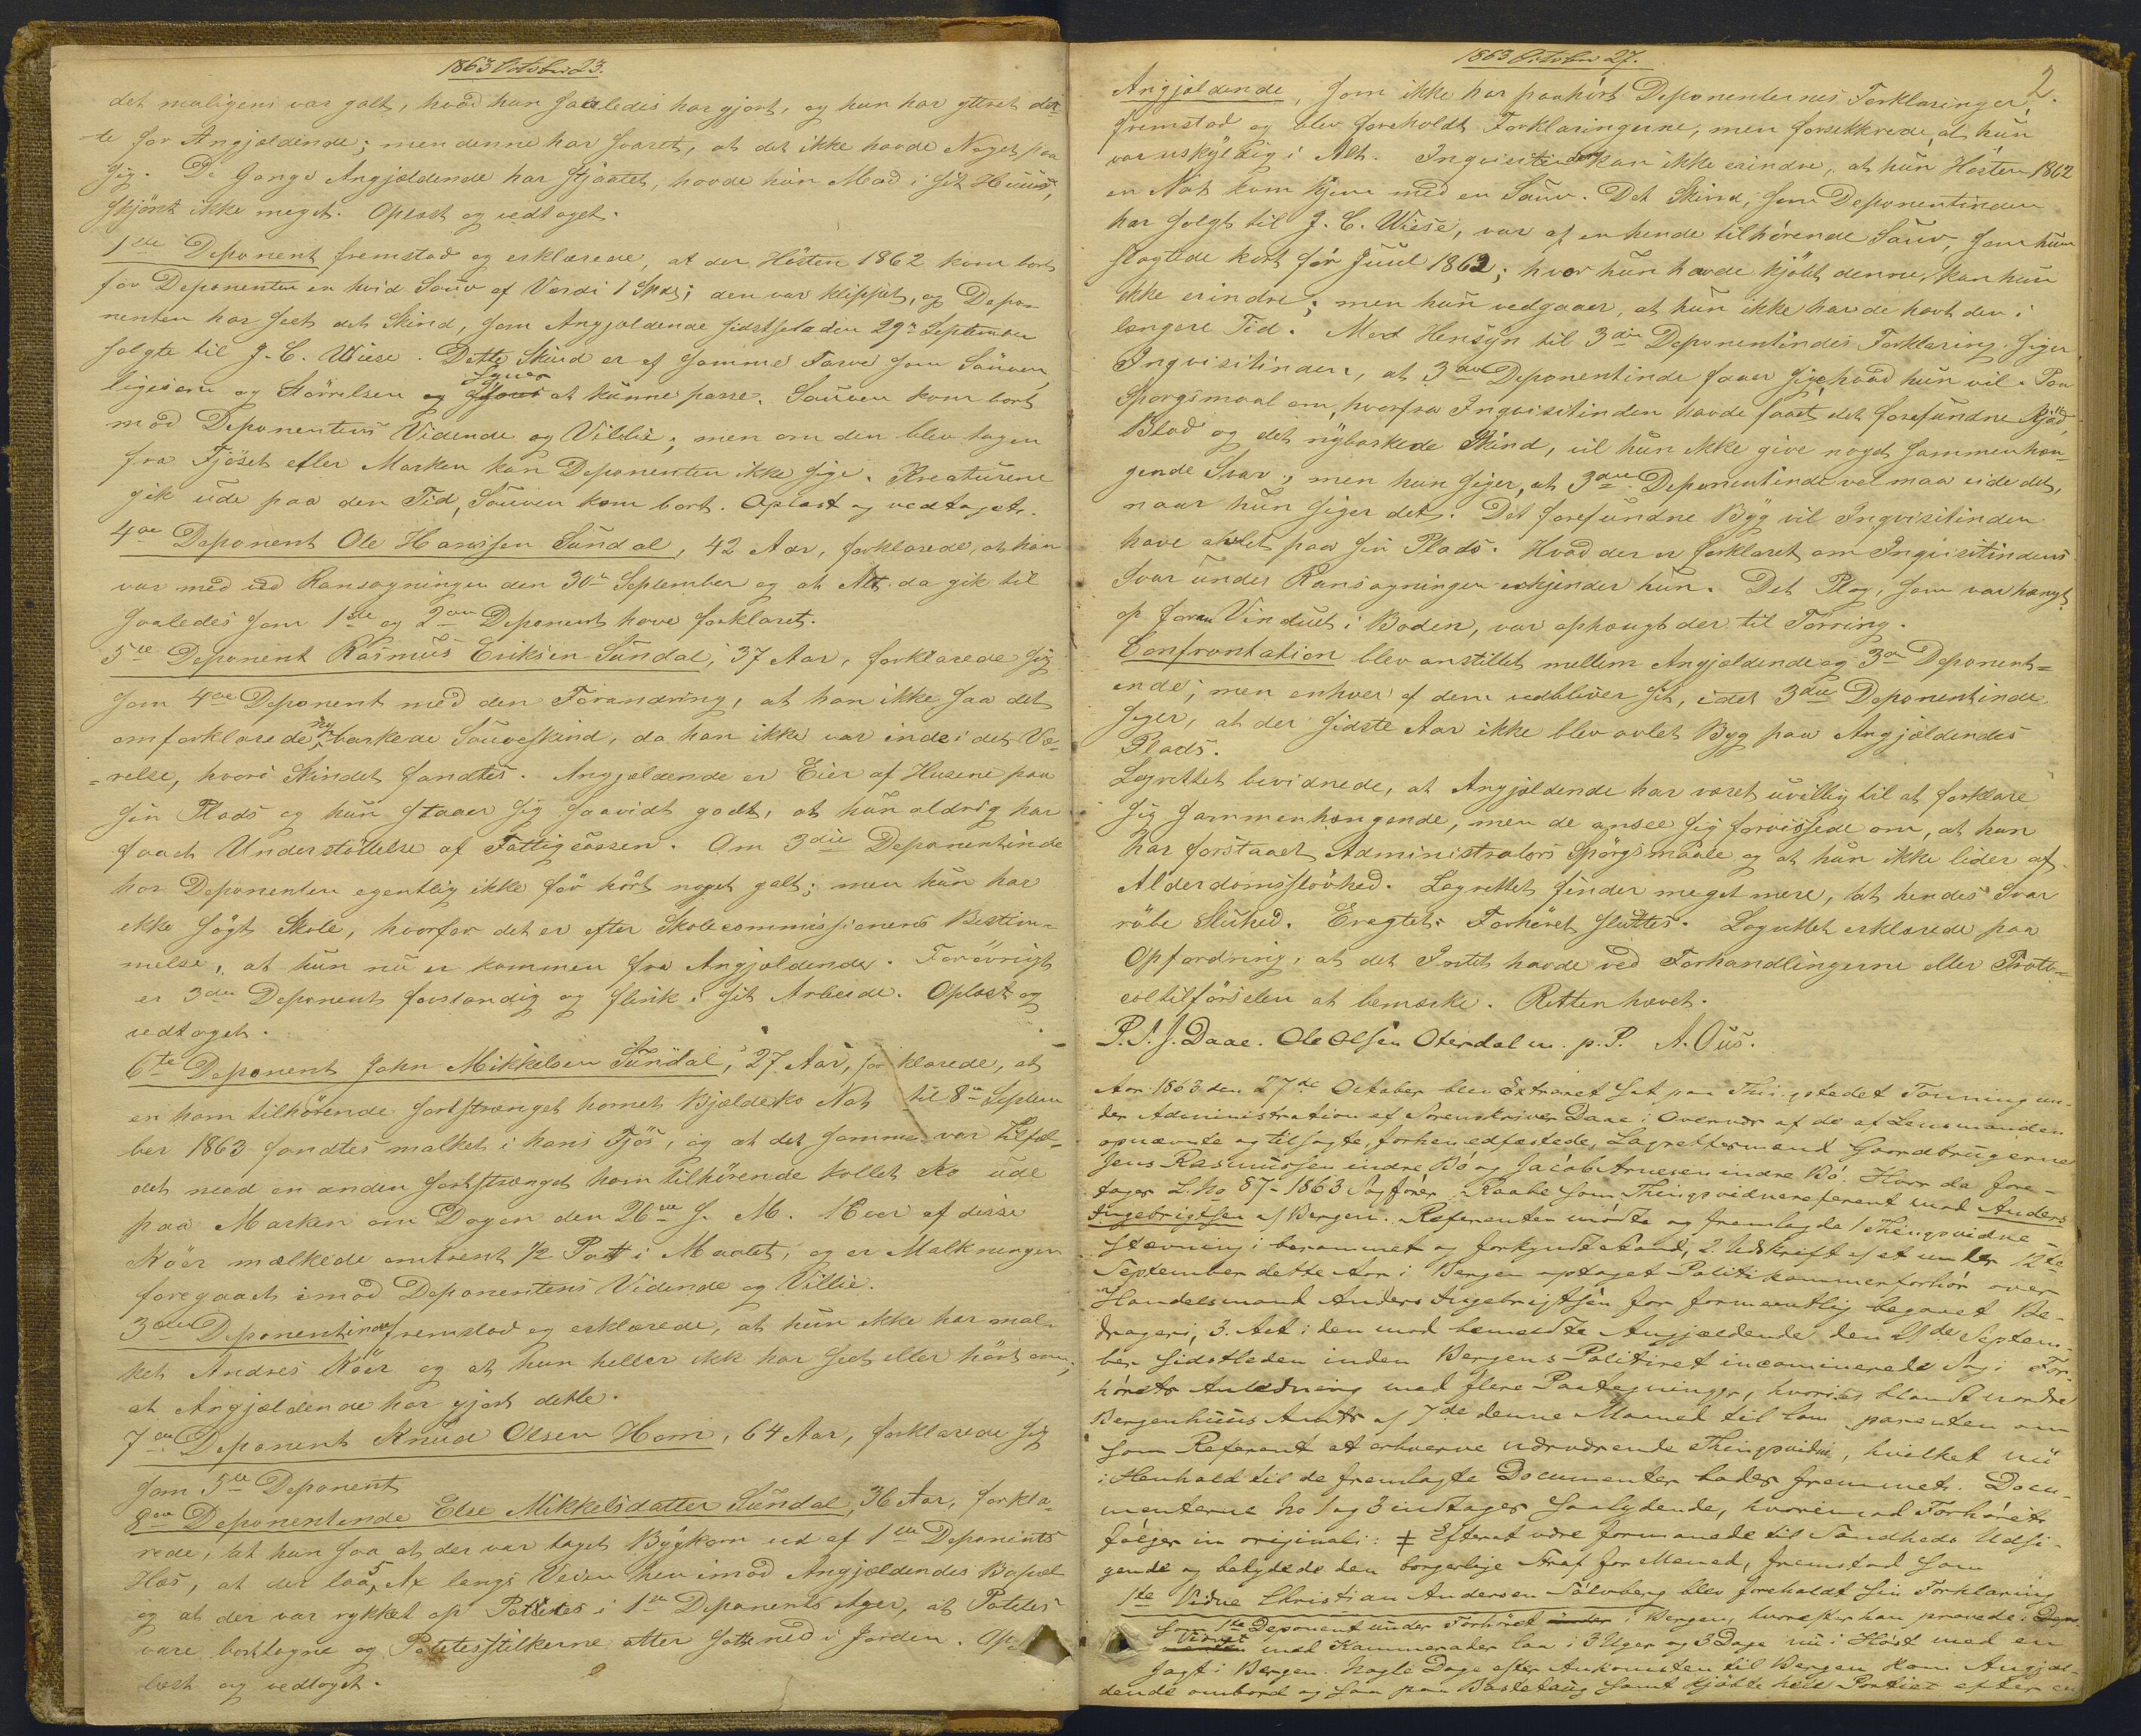 1863 October 23.
det muligens var galt, hvad hun saaledes har gjort, og hun har yttret det-
-te for Angjældende; men denne har svaret, at det ikke havde Noget paa
sig. De Gange Angjældende har stjaalet, havde hun Mad i sit Huus,
skjönt ikke meget. Oplæst og vedtaget.
1ste Deponent fremstod og erklærede, at der Hösten 1862 kom bort
for Deponenten en hvid Sauv af Værdi 1 Spd; den var klippet, og Depo-
nenten har seet det Skind, som Angjældende sidstleden 29de September
solgte til J. C. Wiese. Dette Skind er af samme Farve som Sauven,
ligesom og Störrelsen og synes at kunne passe. Sauven kom bort
mod Deponentens Vidende og Villie; men om den blev tagen
fra Fjöset eller Marken kan Deponenten ikke sige. Kreaturene
gik ude paa den Tid, Sauven kom bort. Oplæst og vedtaget.
4de Deponent Ole Hansen Sundal, 42 Aar, forklarede, at han
var med ved Ransagningen den 30te September og at Alt da gik til
saaledes som 1ste og 2den Deponent have forklaret.
5te Deponent Rasmus Eriksen Sundal, 37 Aar, forklarede sig
som 4de Deponent med den Forandring, at han ikke saa det
omforklarede nybarkede Sauveskind, da han ikke var inde i det Væ-
-relse, hvori Skindet fandtes. Angjældende er Eier af Husene paa
sin Plads og hun staaer sig saavidt godt, at hun aldrig har
faaet Understöttelse af Fattigcassen. Om 3die Deponentinde
har Deponenten egentlig ikke för hört noget galt; men hun har
ikke sögt Skole, hvorfor det er efter Skolecommissionens Bestem-
melse, at hun nu er kommen fra Angjældende. Forövrigt
er 3die Deponent forstandig og flink i sit Arbeide. Oplæst og
vedtaget.
6te Deponent John Mikkelsen Sundal, 27 Aar, forklarede, at
en ham tilhörende hornet Bjældeko Nat til 8de Septem
ber 1863 fandtes malket i hans Fjös, og at det samme var Tilfæl-
det med en anden ham tilhörende kollet Ko ude
paa Marken om Dagen den 26de s. M. Hver af disse
Köer mælkede omtrent 1/2 Pott i Maalet, og er Malkningen
foregaaet imod Deponentens Vidende og Villie.
3die Deponentinde fremstod og erklærede, at hun ikke har mal-
ket Andres Köer og at hun heller ikk har seet eller hört om,
at Angjældende har gjort dette.
7de Deponent Knud Olsen Hom, 64 Aar, forklarede sig
som 5te Deponent
8de Deponentinde Else Mikkelsdatter Sundal, 36 Aar, forkla-
rede, at hun saa at der var taget Bygkorn ud af 1ste Deponents
Hæs, at der laa Ax langs Veien hen imod Angjældendes Bopæl
og at der var rykket op Potetes i 1ste Deponents Ager, at Potetes
vare borttagne og Potetesstilkerne atter satte ned i Jorden. Op-
læst og vedtaget.
1863 October 27.
2.
Angjældende, som ikke har paahört Deponenternes Forklaringer,
fremstod og blev foreholdt Forklaringerne, men forsikkrede, at hun
var uskyldig i Alt. Inqvisitinden kan ikke erindre, at hun Hösten 1862
en Nat kom hjem med en Sauv. Det Skind, som Deponentinden
har solgt til J. C. Wiese, var af en hende tilhörende Sauv, som hun
slagtede kort för Juul 1862; hvor hun havde kjöbt denne, kan hun
ikke erindre; men hun vedgaaer, at hun ikke havde havt den i
længere Tid. Med Hensyn til 3die Deponentindes Forklaring siger
Inqvisitinden, at 3die Deponentinde faaer sige, hvad hun vil. Paa
Spörgsmaal om, hvorfra Inqvisitinden havde faaet det forefundne Kjöd,
Blod og det nybarkede Skind, vil hun ikke give noget sammenhæn-
gende Svar; men hun siger, at 3die Deponentinde vel maa vide det,
naar hun siger det. Det forefundne Byg vil Inqvisitinden
have avlet paa sin Plads. Hvad der er forklaret om Inqvisitindens
Svar under Ransagningen erkjender hun. Det Plag, som var hængt
op foran Vinduet i Boden, var ophængt der til Törring.
Confrontation blev anstillet mellem Angjældende og 3die Deponent-
inde; men enhver af dem vedbliver sit, idet 3die Deponentinde
siger, at der sidste Aar ikke blev avlet Byg paa Angjældendes
Plads.
Lagrettet bevidnede, at Angjældende har været uvillig til at forklare
sig sammenhængende, men de ansee sig forvissede om, at hun
har forstaaet Administrators Spörgsmaale og at hun ikke lider af
Alderdomsslövhed. Lagrettet finder meget mere, at hendes Svar
röbe Sluhed. Eragtet: Forhöret sluttes. Lagrettet erklærede paa
Opfordring, at det Intet havde ved Forhandlingerne eller Proto-
coltilförselen at bemærke. Retten hævet.
P. J. J. Daae. Ole Olsen Oterdal m. p. P. A. Ous.
Aar 1863 den 27de October blev Extraret sat paa Thingstedet Tonning un-
der Administration af Sorenskriver Daae i Overvær af de af Lensmanden
opnævnte og tilsagte, forhen edfæstede, Lagrettesmænd Gaardbrugerne
Jens Rasmussen indre Bö og Jacob Arnesen indre Bö. Hvor da fore-
tages L. No 87-1863 Sagförer Raabe som Thingsvidnereferent mod Anders
Ingebrigtsen af Bergen. Referenten mödte og fremlagde 1 Thingsvidne-
stævning i berammet og forkyndt Stand, 2. Udskrift af et under 12te
September dette Aar i Bergen optaget Politikammerforhör over
Handelsmand Anders Ingebrigtsen for formeentlig begaaet Be-
drageri, 3. Act i den mod bemeldte Angjældende den 21de Septem-
ber sidstleden inden Bergens Politiret incaminerede Sag i For-
hörets Anledning med flere Paategninger, hvoriblandt nordre
Bergenhuus Amts af 7de denne Maaned til Comparenten om
som Referent at erhverve nærværende Thingsvidne, hvilket nu
i Henhold til de fremlagte Documenter bades fremmet. Docu-
menterne No 1 og 3 indtages saalydende, hvorimod Forhöret
fölger in originali: ‡ Efterat være formanede til Sandheds Udsi-
gende og betydede den borgerlige Straf for Meneed, fremstod som
1ste Vidne Christian Andersen Sölvberg blev foreholdt sin Forklaring
som 1ste Deponent under Forhöret i Bergen, hvorefter han provede:
Vidnet med Kammerater laa i 3 Uger og 3 Dage nu i Höst med en
Jagt i Bergen. Nogle Dage efter Ankomsten til Bergen kom Angjæl-
dende ombord og saa paa Bastetaug samt kjöbte hele Partiet efter en